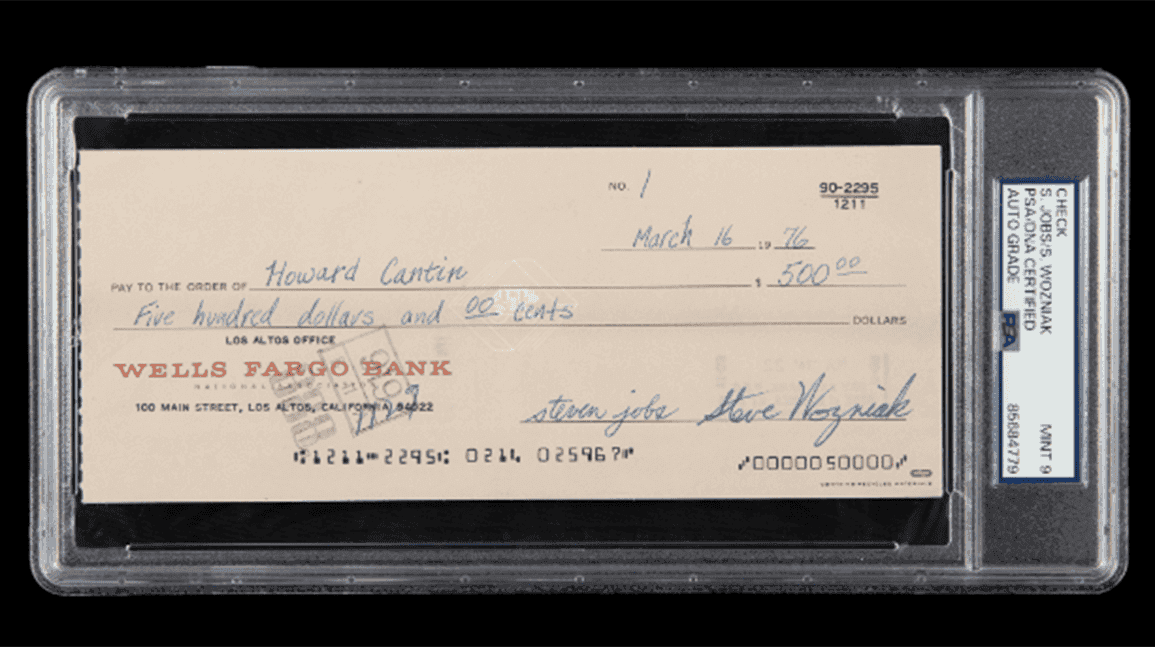 NO. 1
90-2295
1211
March 16 1976
PAY TO THE ORDER OF Howard Cantin $ 500 00
Five hundred dollars and 00 cents DOLLARS
LOS ALTOS OFFICE
WELLS FARGO BANK
NATIONAL ASSOCIATION
100 MAIN STREET, LOS ALTOS, CALIFORNIA 94022
steven jobs Steve Wozniak
⑆1211⑉2295⑆ 0214 025967⑈
⑇0000050000⑇
CONTAINS RECYCLED MATERIALS
CHECK
S. JOBS/S. WOZNIAK
PSA/DNA CERTIFIED
AUTO GRADE MINT 9
PSA 85684779